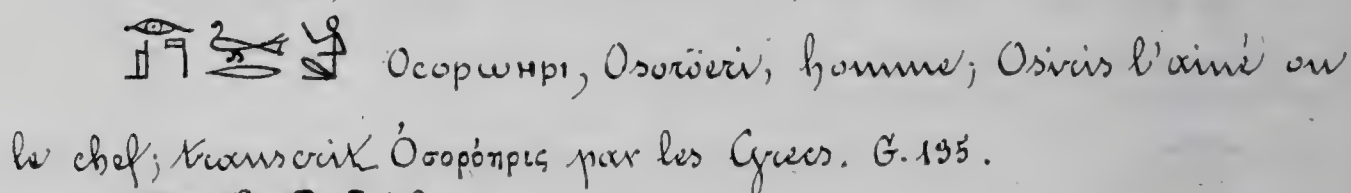 𓊨𓁹𓊹 𓅨𓂋 𓀀 Ⲟⲥⲟⲣⲱⲏⲣⲓ, Osoröeri, homme; Osiris l'ainé ou
le chef; transcrit Ὀσορόηρις par les Grecs. G. 135.